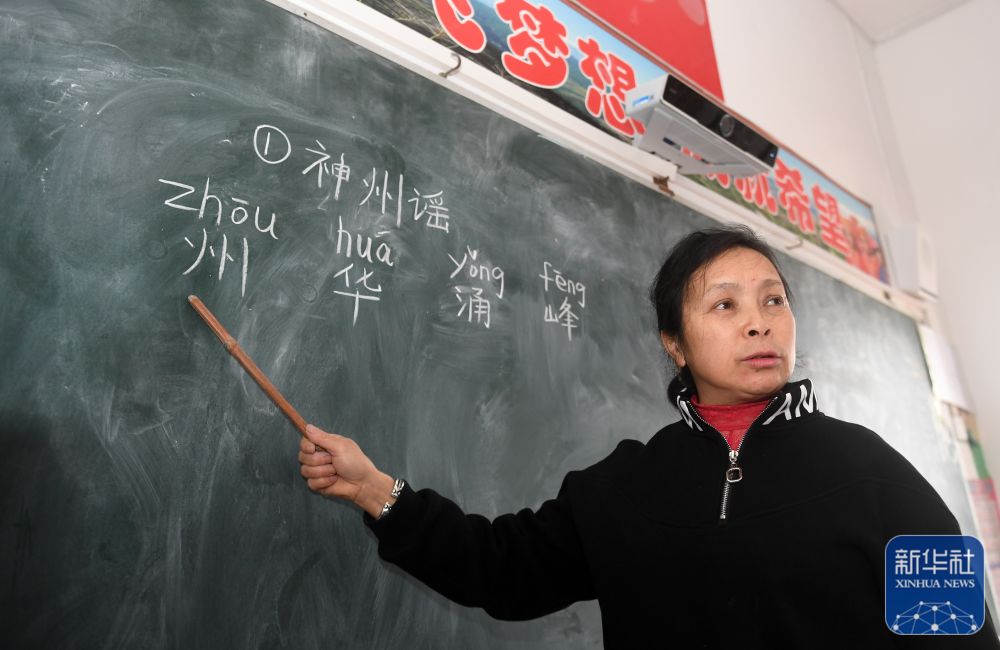 梦想
希望
①神州谣
zhōu huá yǒng fēng
州 华 涌 峰
AM
新华社
XINHUA NEWS